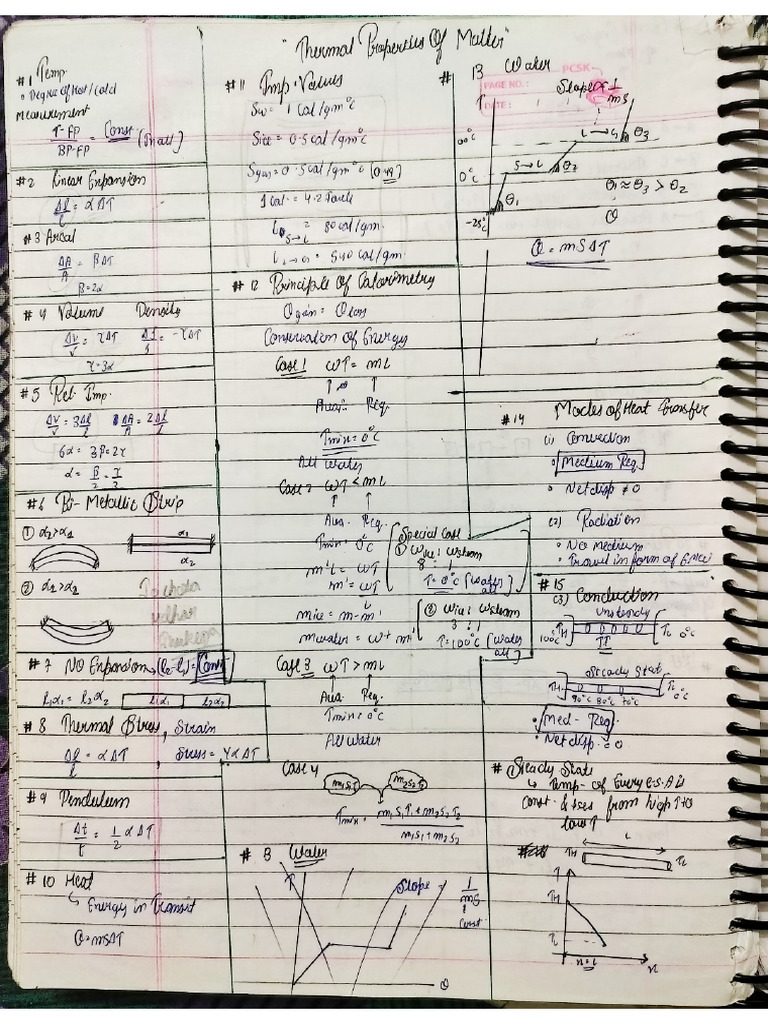 "Thermal Properties Of Matter"
#1 Temp.
• Degree of Hot/Cold
Measurement
T-FP / BP-FP = Const. (for all)
#2 Linear Expansion
Δl/l = αΔT
#3 Areal
ΔA/A = βΔT
β=2α
#4 Volume Density
Δv/v = γΔT Δρ/ρ = -γΔT
γ=3α
#5 Rel. Imp.
Δv/v = 3Δl/l ΔA/A = 2Δl/l
6α = 3β = 2γ
α = β/2 = γ/3
#6 Bi-Metallic Strip
① α2>α1 α1
α2
② α1>α2
#7 No Expansion, (l2-l1)=Const
l1α1 = l2α2 l1α1 l2α2
#8 Thermal Stress, Strain
Δl/l = αΔT Stress = YαΔT
#9 Pendulum
Δt/t = 1/2 αΔT
#10 Heat
↳ Energy in Transit
Q=mSΔT
#11 Imp. Values
Sw = 1 Cal/gm°C
Sice = 0.5 Cal/gm°C
Sgas = 0.5 Cal/gm°C (0.49)
1 Cal = 4.2 Joule
L S→L = 80 cal/gm.
L L→G = 540 cal/gm.
#12 Principle Of Calorimetry
Qgain = Qloss
Conservation of Energy
Case 1 WT = mL
Avai. Req.
Tmix = 0°C
All Water
Case 2 WT < mL
Ava. Req.
Tmix = 0°C
m'L = WT
m' = WT/L
mice = m-m'
mwater = W+m'
Special Case
① Wice : Wsteam
8 : 1
T = 0°C [Water all]
② Wice : Wsteam
3 : 1
T=100°C [Water all]
Case 3 WT > mL
Ava. Req.
Tmin = 0°C
All Water
Case 4
m1S1T1 m2S2T2
Tmix = m1S1T1+m2S2T2 / m1S1+m2S2
#8 Water
T Slope 1/mS
Const.
Q
#13 Water
PCSK
PAGE NO.:
DATE:
T Slope ∝ 1/mS
L→G θ3
0°C S→L θ2
-25°C θ1
θ1≈θ3>θ2
Q
Q = mSΔT
#14 Modes of Heat Transfer
(1) Convection
• Medium Req.
• Net disp ≠ 0
(2) Radiation
• No medium
• Travel in form of
#15
(3) Conduction
Unsteady
100°C TH TL 0°C
Steady State
TH TL
0°C
90°C 80°C 70°C
• Med- Req.
• Net disp. = 0
# Steady State
↳ Temp- of Every C.S.A is
Const. & ↓ses from high T to
low T
L
TH TL
T
TH
TL
x=L x